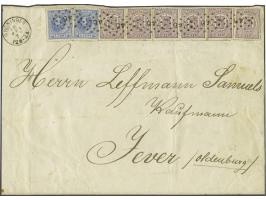 Herrn Leffmann Samuels
Kaufmann
Jever /Oldenburg/